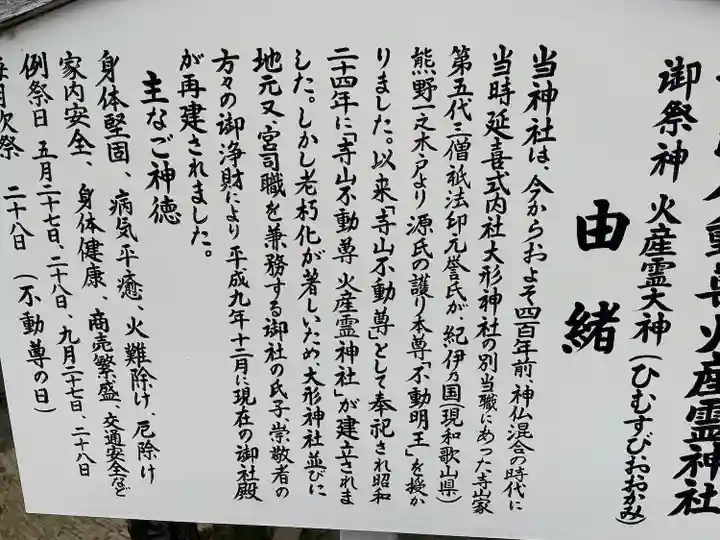 不動尊火産霊神社
御祭神 火産霊大神(ひむすびおおかみ)
由緒
当神社は、今からおよそ四百年前、神仏混合の時代に
当時延喜式内社大形神社の別当職にあった寺山家
第五代三僧祇法印元誉氏が、紀伊乃国(現和歌山県)
熊野一之木戸より源氏の護り本尊「不動明王」を授か
りました。以来「寺山不動尊」として奉祀され昭和
二十四年に「寺山不動尊 火産霊神社」が建立されま
した。しかし老朽化が著しいため大形神社並びに
地元又、宮司職を兼務する御社の氏子、崇敬者の
方々の御浄財により平成九年十二月に現在の御社殿
が再建されました。
主なご神徳
身体堅固、病気平癒、火難除け、厄除け
家内安全、身体健康、商売繁盛、交通安全など
例祭日 五月二十七日、二十八日、九月二十七日、二十八日
毎月次祭 二十八日(不動尊の日)